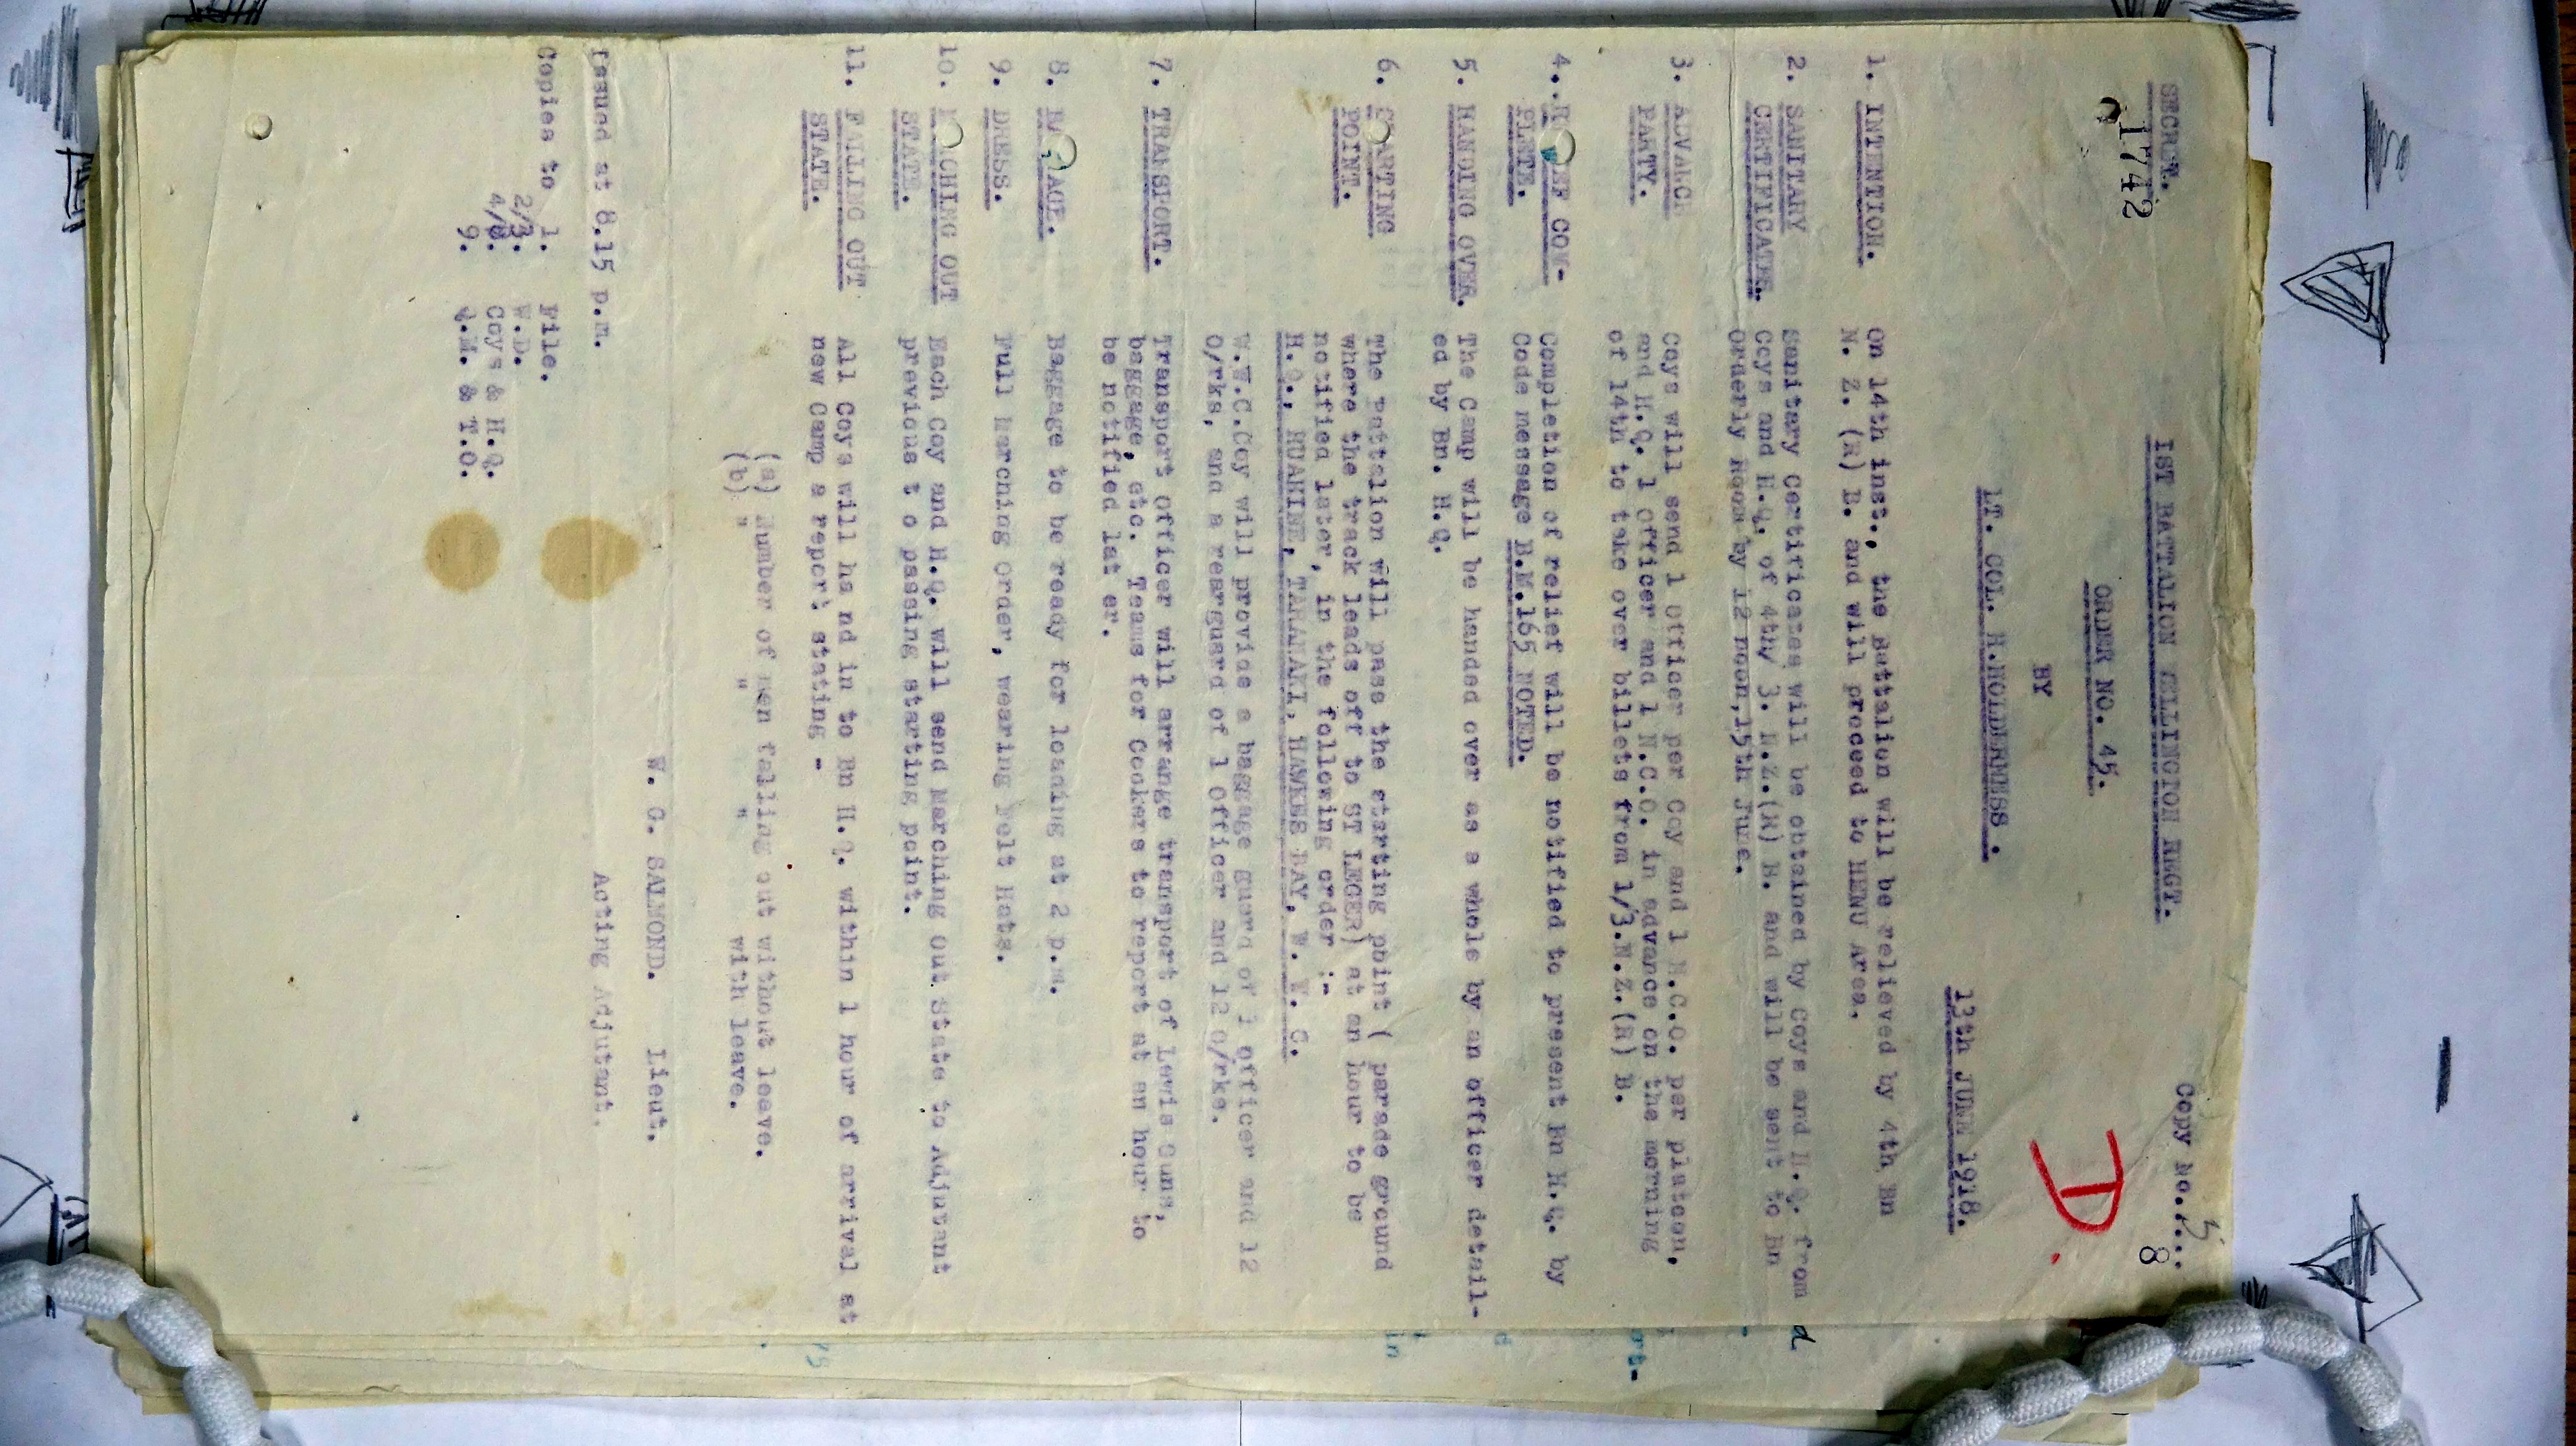 SECRET.
Copy No. 3...
8
1742
1ST BATTALION WELLINGTON REGT.
ORDER NO. 45.
BY
LT. COL. H.HOLDERNESS .
13th JUNE 1918.
D.
1. INTENTION. On 14th inst., the Battalion will be relieved by 4th Bn
N. Z. (R) B. and will proceed to HENU Area.
2. SANITARY Sanitary Certificates will be obtained by Coys and H.Q. from
CERTIFICATES. Coys and H.Q. of 4th/ 3. N.Z.(R) B. and will be sent to Bn
Orderly Room by 12 noon,15th June.
3. ADVANCE Coys will send 1 Officer per Coy and 1 N.C.O. per platoon,
PARTY. and H.Q. 1 officer and 1 N.C.O. in advance on the morning
of 14th to take over billets from 1/3.N.Z.(R) B.
4. R EF COM- Completion of relief will be notified to present Bn H.Q. by
PLETE. Code message B.M.165 NOTED.
5. HANDING OVER. The Camp will be handed over as a whole by an officer detail-
ed by Bn. H.Q.
6. STARTING The Battalion will pass the starting point ( parade ground
POINT. where the track leads off to ST LEGER) at an hour to be
notified later, in the following order :-
H.Q., RUAHINE, TARANAKI, HAWKES BAY, W. W. C.
W.W.C.Coy will provide a baggage guard of 1 officer and 12
O/rks, and a rearguard of 1 Officer and 12 O/rks.
7. TRANSPORT. Transport Officer will arrange transport of Lewis Guns,
baggage, etc. Teams for Cookers to report at an hour to
be notified lat er.
8. BA AGE. Baggage to be ready for loading at 2 p.m.
9. DRESS. Full Marching Order, wearing Felt Hats.
10. M CHING OUT Each Coy and H.Q. will send Marching Out State to Adjutant
STATE. previous t o passing starting point.
11. FALLING OUT All Coys will ha nd in to Bn H.Q. within 1 hour of arrival at
STATE. new Camp a report stating -
(a) Number of men falling out without leave.
(b) " " " with leave.
W. G. SALMOND. Lieut.
Acting Adjutant.
Issued at 8.15 p.m.
Copies to 1. File.
2/3. W.D.
4/8. Coys & H.Q.
9. Q.M. & T.O.
d
rt-
d
in
ys